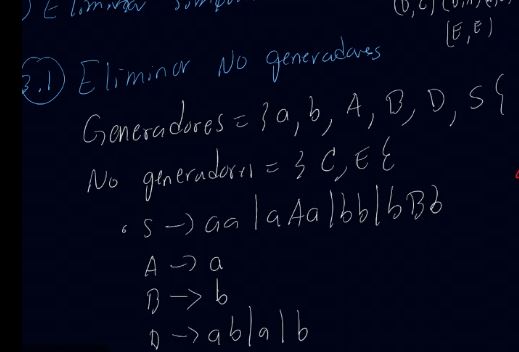 ) Eliminar
(D,C)
(E,E)
3.1) Eliminar No generadores
Generadores = } a, b, A, B, D, S {
No generadores = } C, E {
S -> aa | aAa | bb | bBb
A -> a
B -> b
D -> ab | a | b